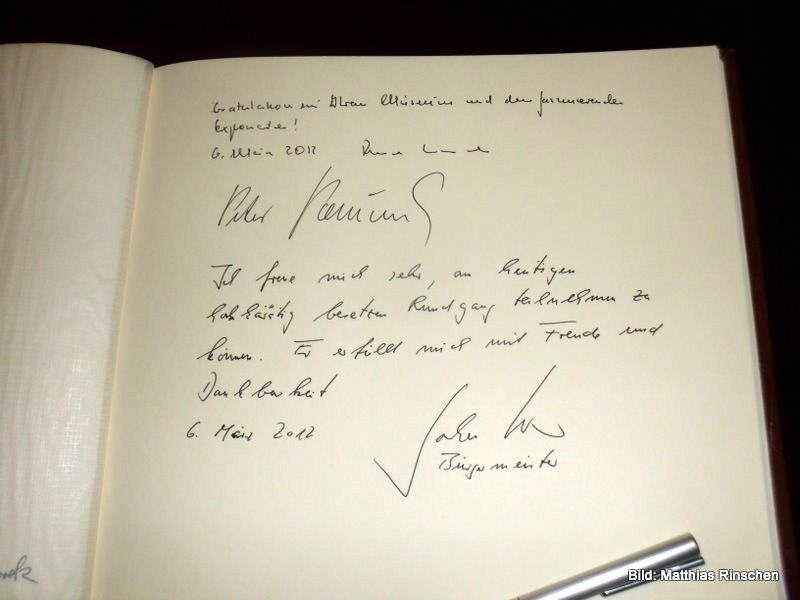 Gratulation zu Ihrem Museum und den faszinierenden
Exponaten!
6. März 2012
Peter
Ich freue mich sehr, am heutigen
hochkarätig besetzten Rundgang teilnehmen zu
können. Er erfüllt mich mit Freude und
Dankbarkeit
6. März 2012
Bürgermeister
Bild: Matthias Rinschen